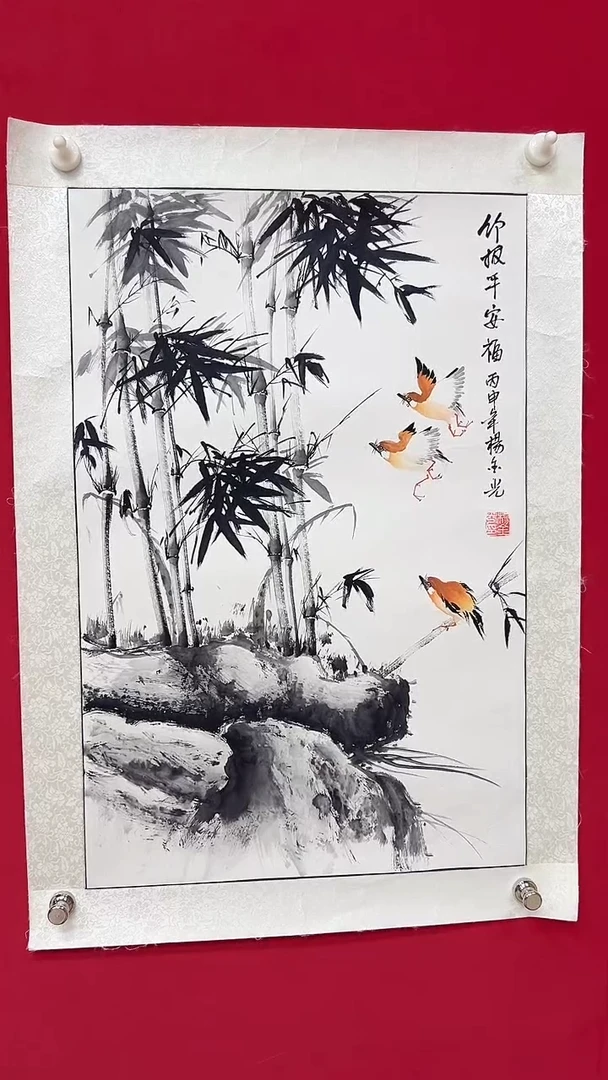 竹报平安福 丙申年楊金光